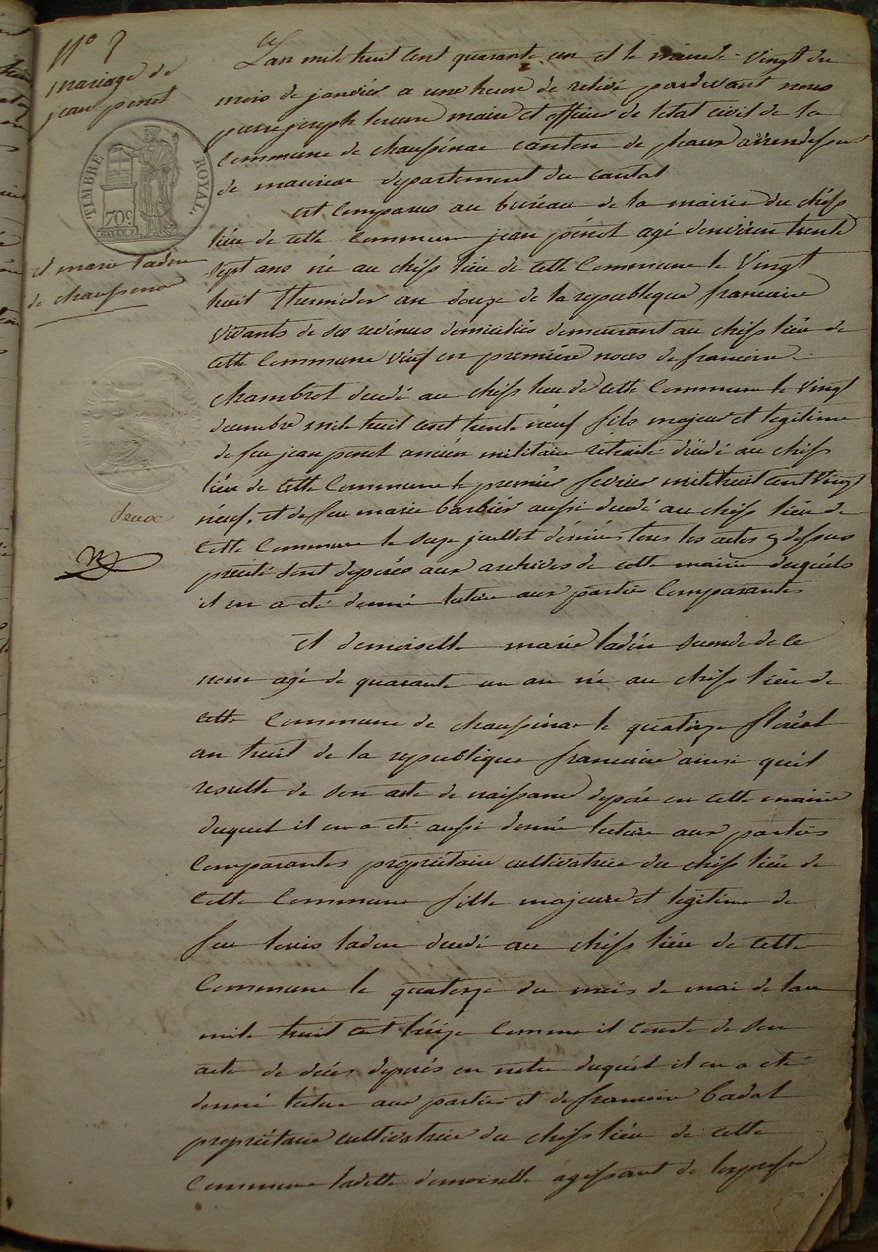 N° ?
mariage de
jean penot
TIMBRE ROYAL
70c
et marie laden
de chaussenac
deux
L'an mil huit cent quarante un et le vingt du
mois de janvier a une heure de relevé pardevant nous
pierre joseph maire et officier de letat civil de la
Commune de chaussenac canton de pleaux arrondissem
de mauriac departement du cantal
est Comparus au bureau de la mairie du chef
lieu de cette Commune jean penot agé denviron trente
sept ans né au chef lieu de cette Commune le Vingt
huit thermidor an douze de la republique francaise
vivants de ses revenus domicilié demeurant au chef lieu de
cette Commune veuf en première noces de francoise
chambrot decedé au chef lieu de cette Commune le vingt
decembre mil huit cent trente neuf fils majeur et legitime
de feu jean penot ancien militaire retraité décédé au chef
lieu de cette Commune le premier fevrier mil huit cent Vingt
neuf, et de feu marie barbier aussi decedé au chef lieu de
cette Commune le juillet dernier tous les actes cy dessus
precité sont deposés aux archives de cette mairie duquels
il en a eté donné lecture aux partie Comparantes
et demoiselle marie ladén de ce
nom agé de quarante un an né au chef lieu de
cette Commune de chaussenac le quatorze floréal
an huit de la republique francaise ainsi quil
resulte de son acte de naissance deposé en cette mairie
duquel il en a eté aussi donné lecture aux parties
Comparantes propriétaire cultivatrice du chef lieu de
cette Commune fille majeure et legitime de
feu louis laden decedé au chef lieu de cette
Commune le quatorze du mois de mai de lan
mil huit cent treize Comme il conste de son
acte de décés deposés en notre duquel il en a eté
donné lecture aux partie et de francoise Cadal
propriétaire cultivatrice du chef lieu de cette
Commune ladette demoiselle agissant de lexpresse